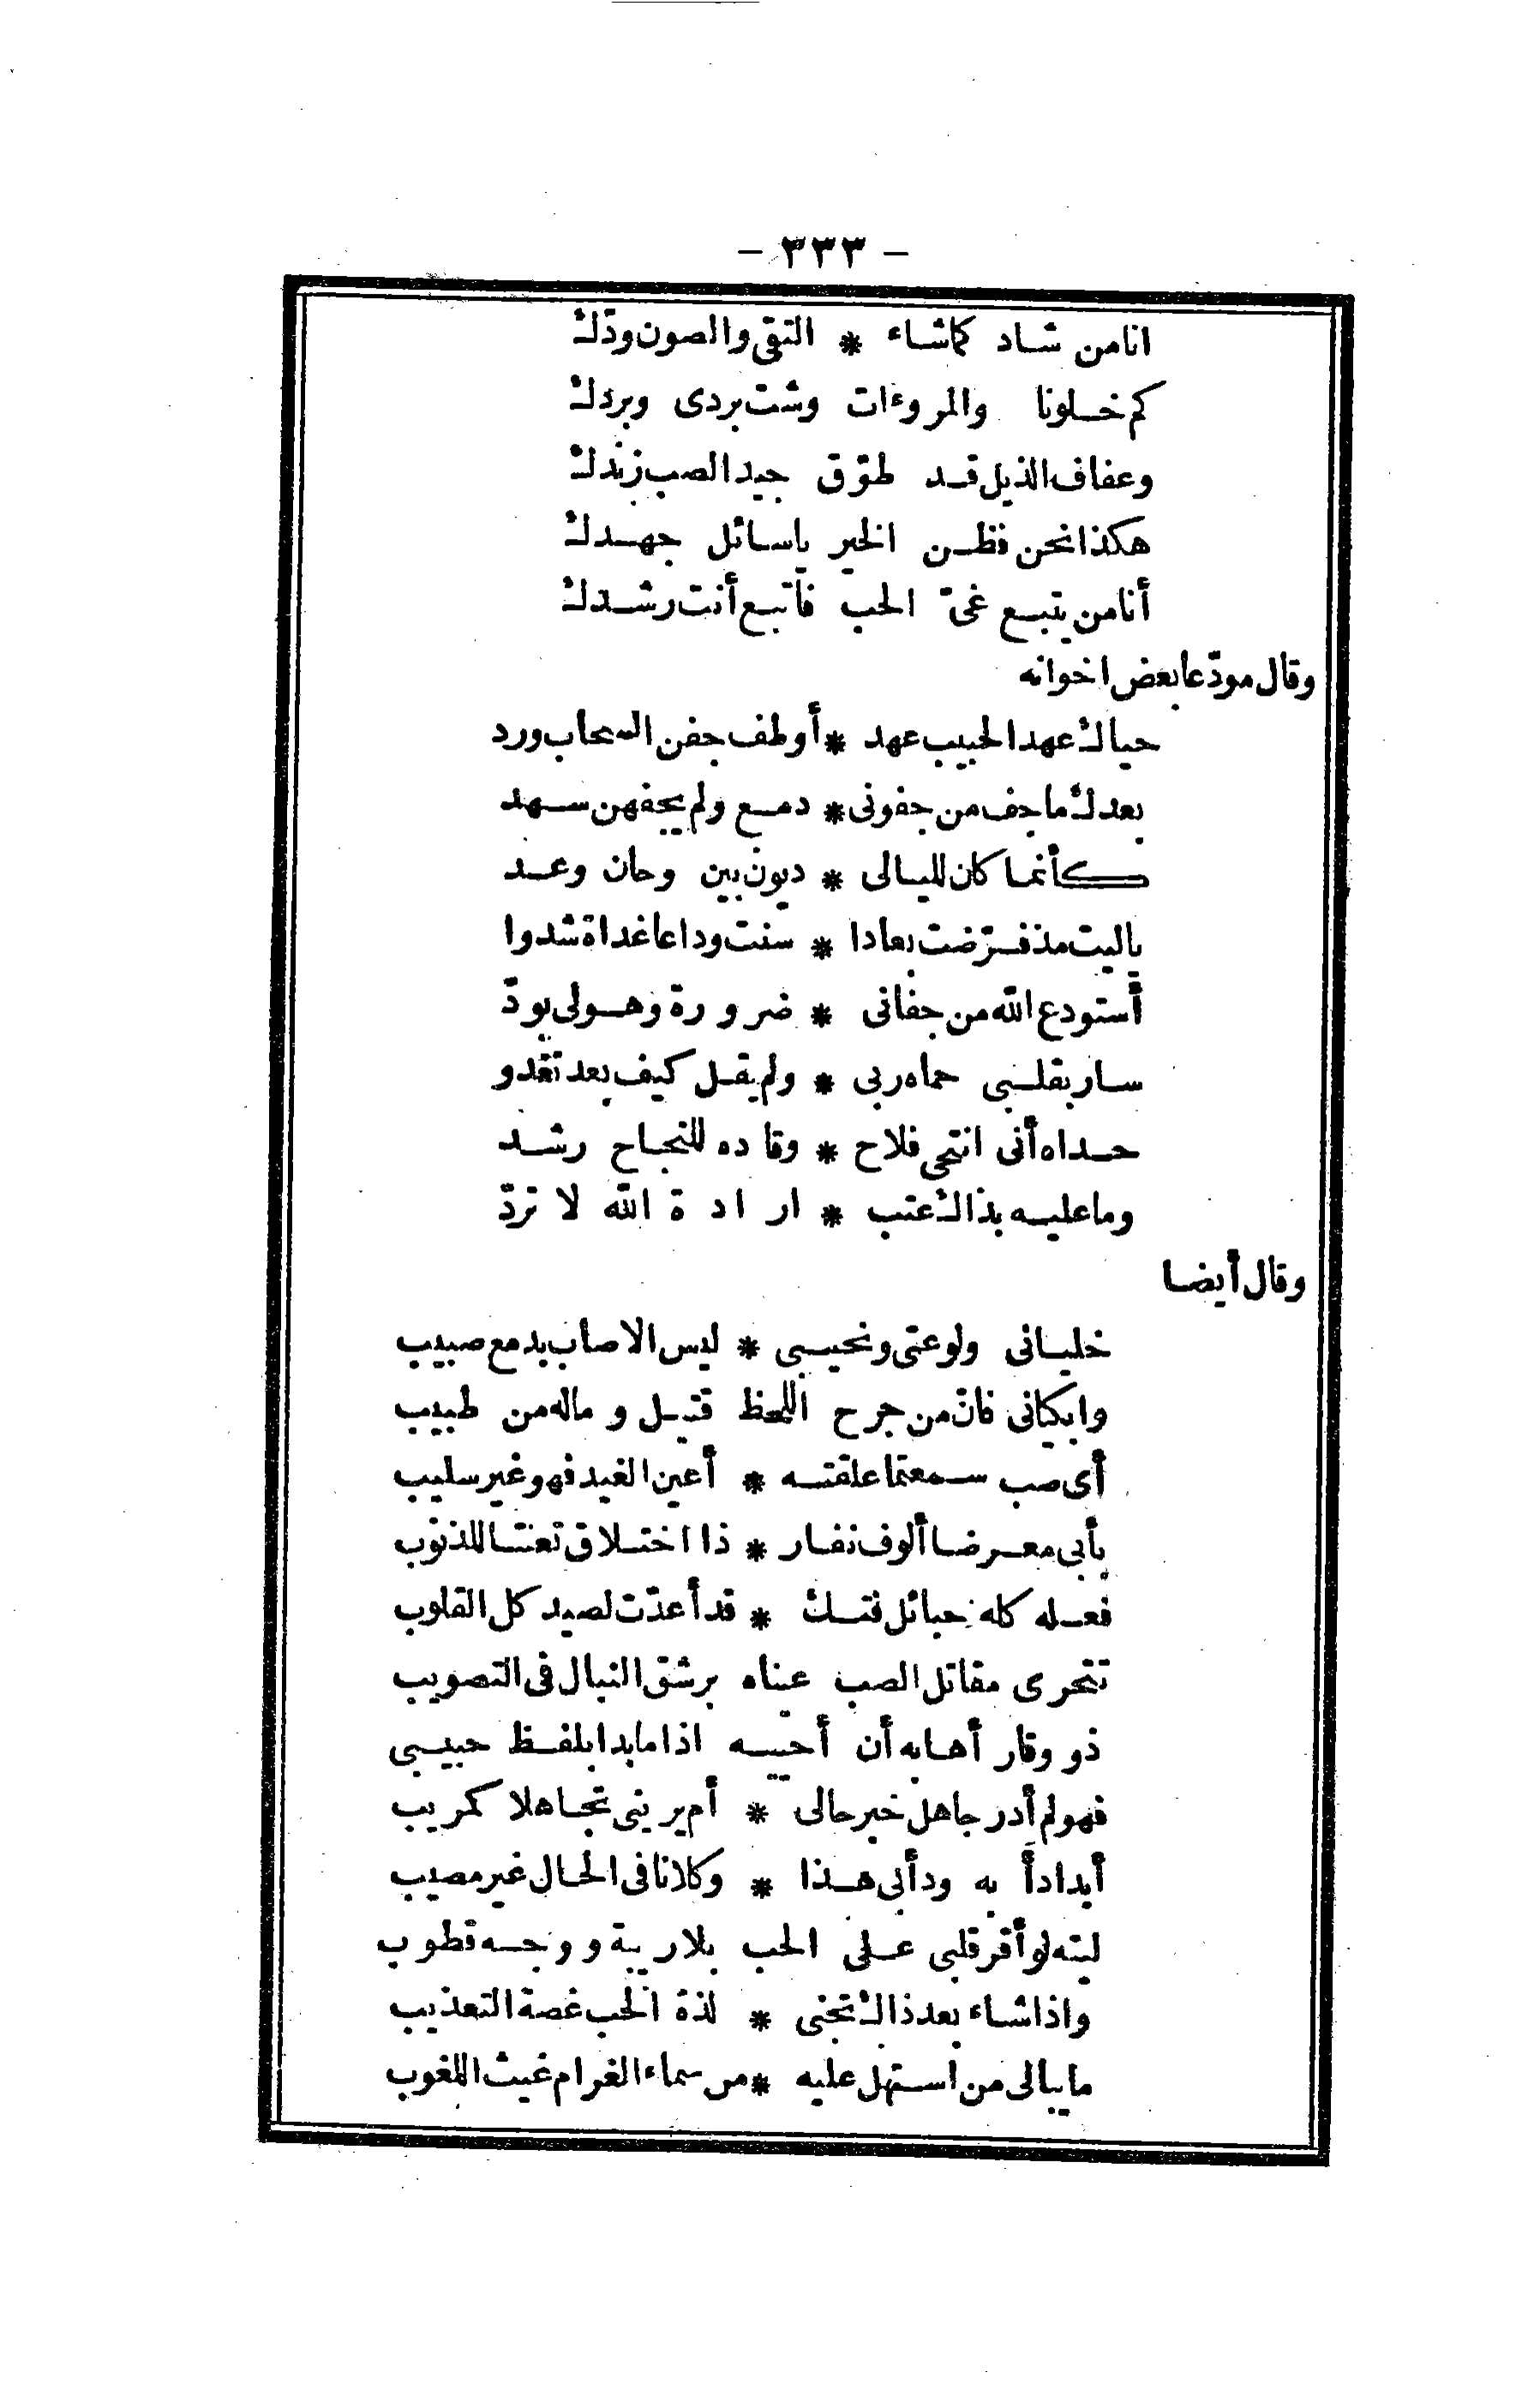 - ٣٣٣ -
انا من شاد كما شاء * التقى والصون ودّك
كم خلونا والمروءات وشت بردى وبردك
وعفاف الذيل قد طوّق جيد الصب زندك
هكذا نحن فظن الخير ياسائل جهدك
أنا من يتبع غىّ الحب فاتبع أنت رشدك
وقال مودّعا بعض اخوانه
حياك عهد الحبيب عهد * أوطف جفن السحاب ورد
بعدك ما جف من جفونى * دمع ولم يجفهن سهد
كأنما كان لليالى * ديون بين وحان وعد
ياليت مذ فرّضت بعادا * سنت وداعا غداة شدوا
أستودع الله من جفانى * ضرورة وهو لى يودّ
سار بقلبى حماه ربى * ولم يقل كيف بعد تغدو
حداه أنى انتحى فلاح * وقاده للنجاح رشد
وما عليه بذاك عتب * ارادة الله لا تردّ
وقال أيضا
خليانى ولوعتى ونحيبى * ليس الاصاب بدمع صبيب
وابكيانى فان من جرح اللحظ قتيل وماله من طبيب
أى صب سمعتما علقته * أعين الغيد فهو غير سليب
بأبى معرضا ألوف نفار * ذا اختلاق تعنتا للذنوب
فعله كله حبائل فتك * قد أعدّت لصيد كل القلوب
تتحرى مقاتل الصب عيناه برشق النبال فى التصويب
ذو وقار أهابه أن أحييه اذا ما بدا بلفظ حبيبى
فهو لم أدر جاهل خبر حالى * أم يرينى تجاهلا كمريب
أبدا دأ به ودأبى هذا * وكلانا فى الحال غير مصيب
ليته لو أقر قلبى على الحب بلا ريبة ووجه قطوب
واذا شاء بعد ذاك تجنى * لذة الحب غصة التعذيب
ما يبالى من استهل عليه * من سماء الغرام غيث اللغوب